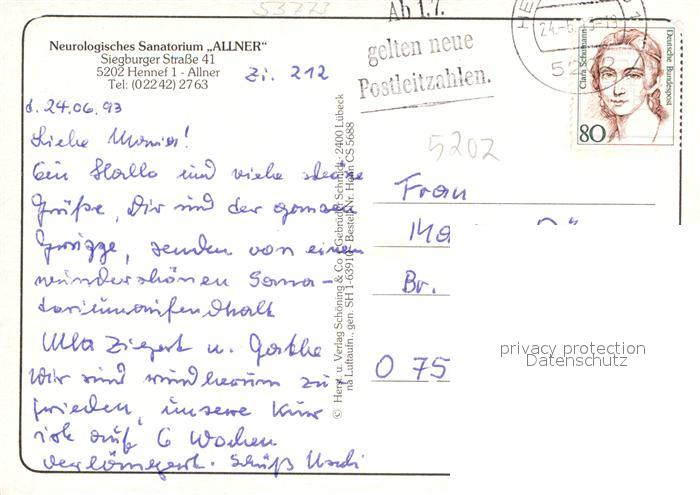 53773
Neurologisches Sanatorium „ALLNER"
Siegburger Straße 41
5202 Hennef 1 - Allner
Tel: (02242) 2763
Zi. 212
Ab 1.7.
gelten neue
Postleitzahlen.
24.-6.93-18
Clara Schumann
Deutsche Bundespost
80
5202
d. 24.06.93
Liebe Mania!
Ein Hallo und viele
Grüße, Dir und der ganzen
Gruppe, senden von einem
wunderschönen Sana-
toriumaufenthalt
Ulla Ziegert u.
Wir sind rundherum zu-
frieden, unsere Kur
ist auf 6 Wochen
verlängert. Tschüß Uschi
Frau
Ma
Br.
O 75
© Herst. u. Verlag Schöning & Co + Gebrüder Schmidt · 2400 Lübeck
na Luftaufn., gen. SH 1-6391 Bestell-Nr. Hein CS 5688
privacy protection
Datenschutz